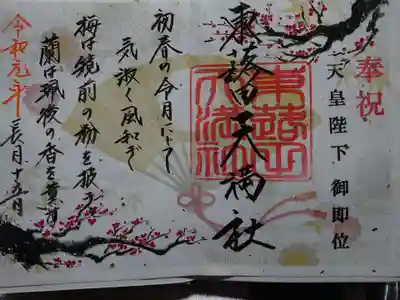 奉祝
天皇陛下 御即位
東蕗田天満社
初春の令月にして
気淑く風和ぎ
梅は鏡前の粉を披き
蘭は珮後の香を薫す
令和元年 長月十五日